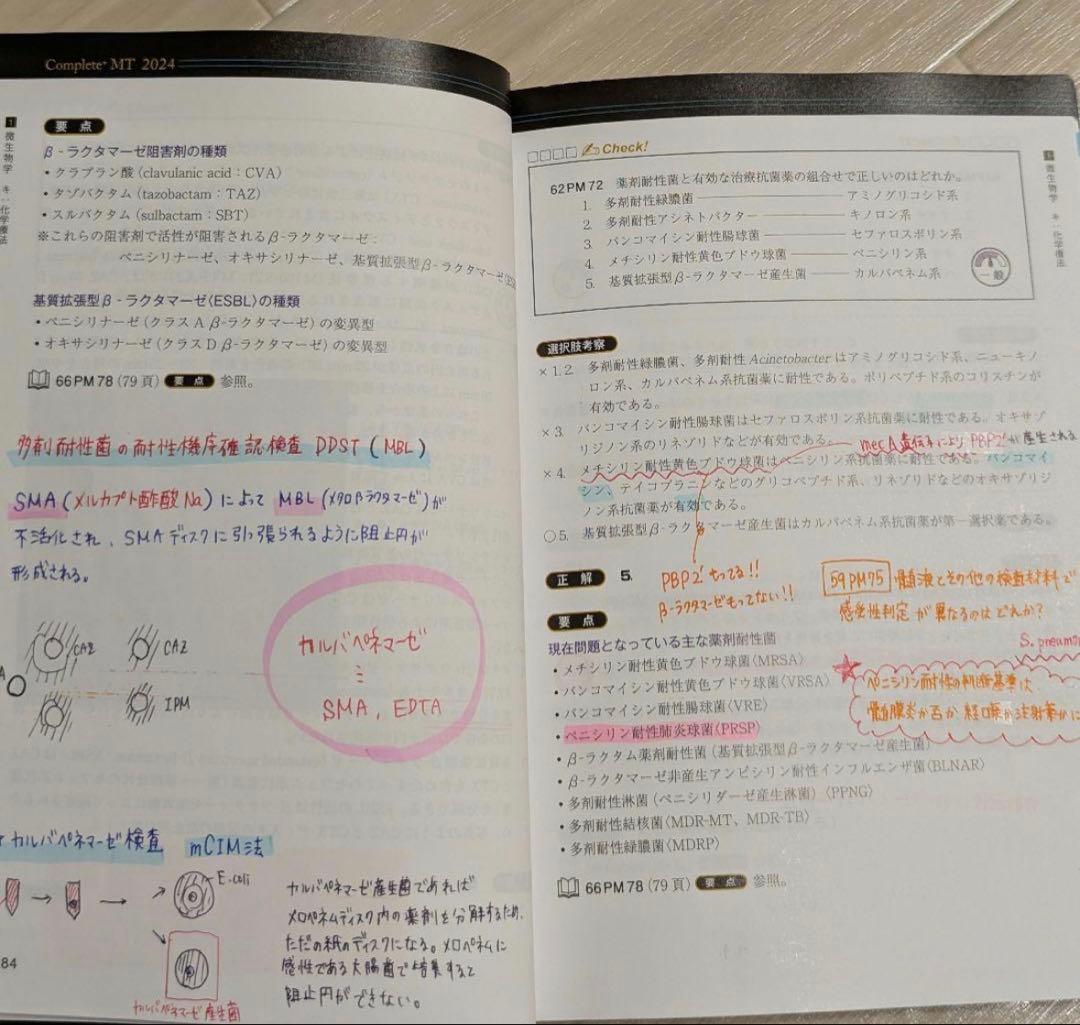 Complete+ MT 2024
1 微生物学 キ:化学療法
要点
β-ラクタマーゼ阻害剤の種類
・クラブラン酸(clavulanic acid:CVA)
・タゾバクタム(tazobactam:TAZ)
・スルバクタム(sulbactam:SBT)
※これらの阻害剤で活性が阻害されるβ-ラクタマーゼ:
ペニシリナーゼ、オキサシリナーゼ、基質拡張型β-ラクタマーゼ(ES
基質拡張型β-ラクタマーゼ〈ESBL〉の種類
・ペニシリナーゼ(クラスAβ-ラクタマーゼ)の変異型
・オキサシリナーゼ(クラスDβ-ラクタマーゼ)の変異型
66PM78(79頁) 要点 参照。
多剤耐性菌の耐性機序確認検査 DDST(MBL)
SMA(メルカプト酢酸Na)によって MBL(メタロβラクタマーゼ)が
不活化され、SMAディスクに引っ張られるように阻止円が
形成される。
CAZ CAZ
A
IPM
カルバペネマーゼ
⋮
SMA, EDTA
カルバペネマーゼ検査 mCIM法
E.coli
カルバペネマーゼ産生菌
カルバペネマーゼ産生菌であれば
メロペネムディスク内の薬剤を分解するため、
ただの紙のディスクになる。メロペネムに
感性である大腸菌で培養すると
阻止円ができない。
84
□□□□ Check!
62PM72 薬剤耐性菌と有効な治療抗菌薬の組合せで正しいのはどれか。
1. 多剤耐性緑膿菌――アミノグリコシド系
2. 多剤耐性アシネトバクター――キノロン系
3. バンコマイシン耐性腸球菌――セファロスポリン系
4. メチシリン耐性黄色ブドウ球菌――ペニシリン系
5. 基質拡張型β-ラクタマーゼ産生菌――カルバペネム系
一般
1 微生物学 キ:化学療法
選択肢考察
×1.2. 多剤耐性緑膿菌、多剤耐性Acinetobacterはアミノグリコシド系、ニューキノ
ロン系、カルバペネム系抗菌薬に耐性である。ポリペプチド系のコリスチンが
有効である。
×3. バンコマイシン耐性腸球菌はセファロスポリン系抗菌薬に耐性である。オキサゾ
リジノン系のリネゾリドなどが有効である。
mecA遺伝子によりPBP2'が産生される
×4. メチシリン耐性黄色ブドウ球菌はペニシリン系抗菌薬に耐性である。バンコマイ
シン、テイコプラニンなどのグリコペプチド系、リネゾリドなどのオキサゾリジ
ノン系抗菌薬が有効である。
○5. 基質拡張型β-ラクタマーゼ産生菌はカルバペネム系抗菌薬が第一選択薬である。
正解 5.
PBP2'もってる!!
β-ラクタマーゼもってない!!
59PM75 髄液とその他の検査材料で
感受性判定が異なるのはどれか?
S. pneumo
要点
現在問題となっている主な薬剤耐性菌
・メチシリン耐性黄色ブドウ球菌〈MRSA〉
・バンコマイシン耐性黄色ブドウ球菌〈VRSA〉
・バンコマイシン耐性腸球菌〈VRE〉
・ペニシリン耐性肺炎球菌〈PRSP〉
ペニシリン耐性の判断基準は
髄膜炎か否か 経口薬か注射薬かに
・β-ラクタム薬剤耐性菌(基質拡張型β-ラクタマーゼ産生菌)
・β-ラクタマーゼ非産生アンピシリン耐性インフルエンザ菌〈BLNAR〉
・多剤耐性淋菌(ペニシリダーゼ産生淋菌)〈PPNG〉
・多剤耐性結核菌〈MDR-MT、MDR-TB〉
・多剤耐性緑膿菌〈MDRP〉
66PM78(79頁) 要点 参照。